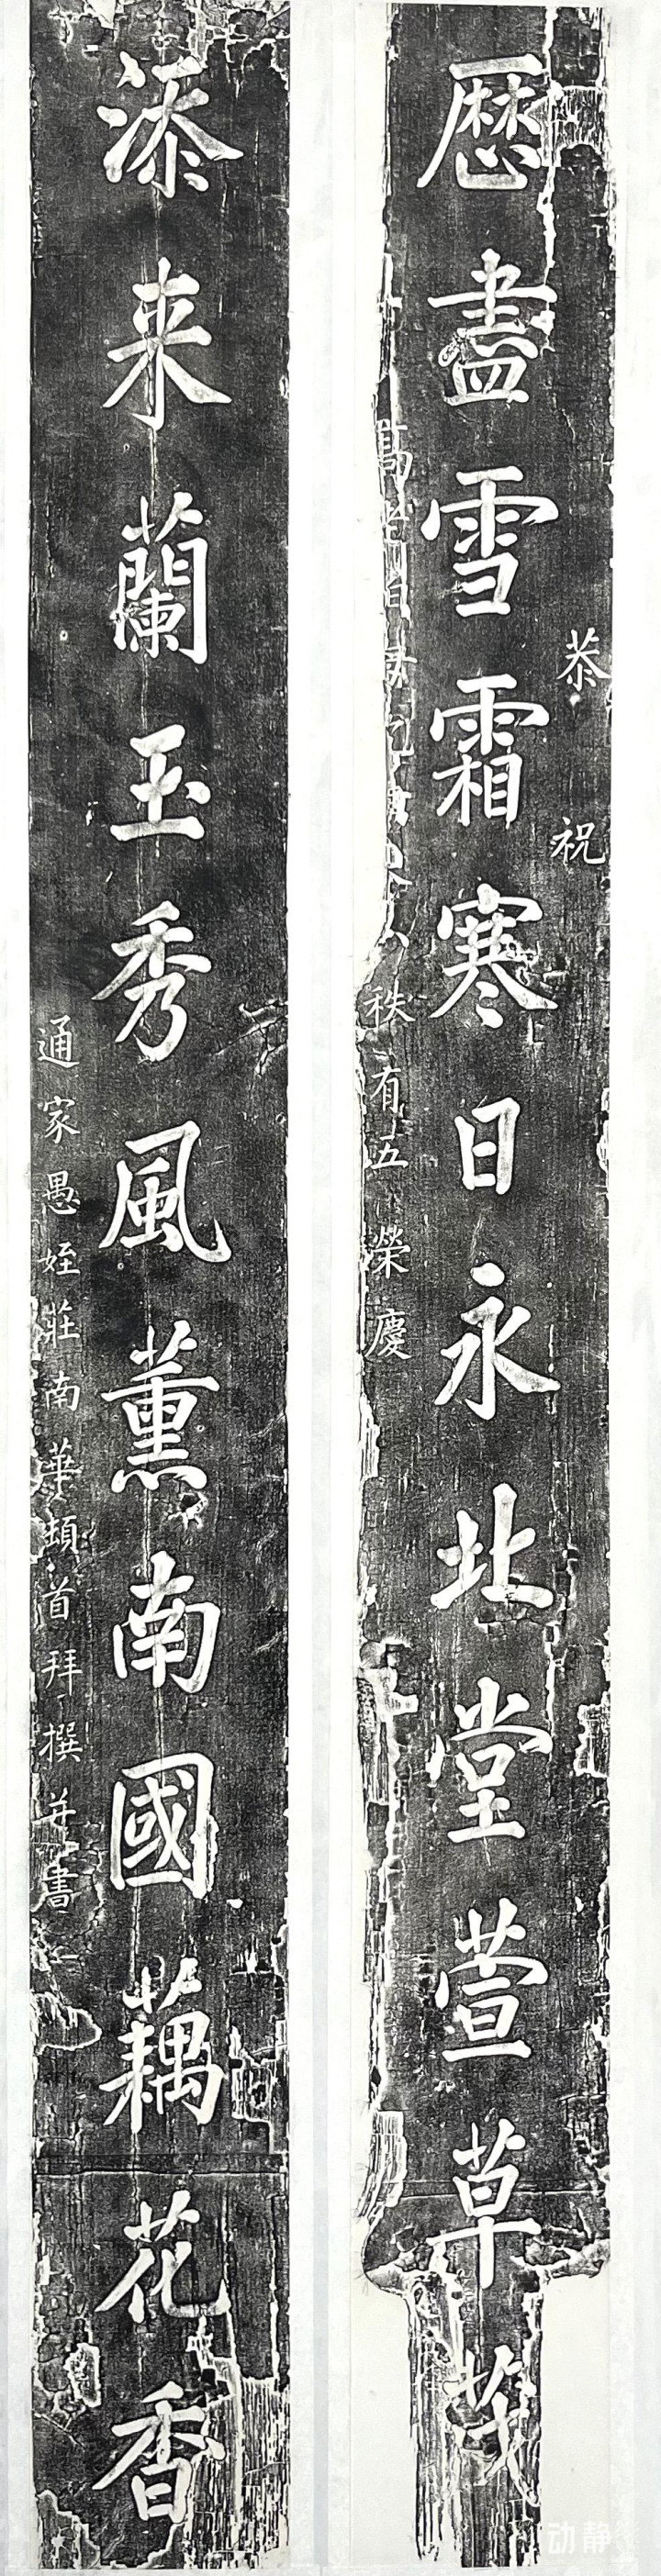 恭祝
歷盡雪霜寒日永北堂萱草茂
秩有五榮慶
添来蘭玉秀風薰南國藕花香
通家愚姪莊南華頓首拜撰并書
动静